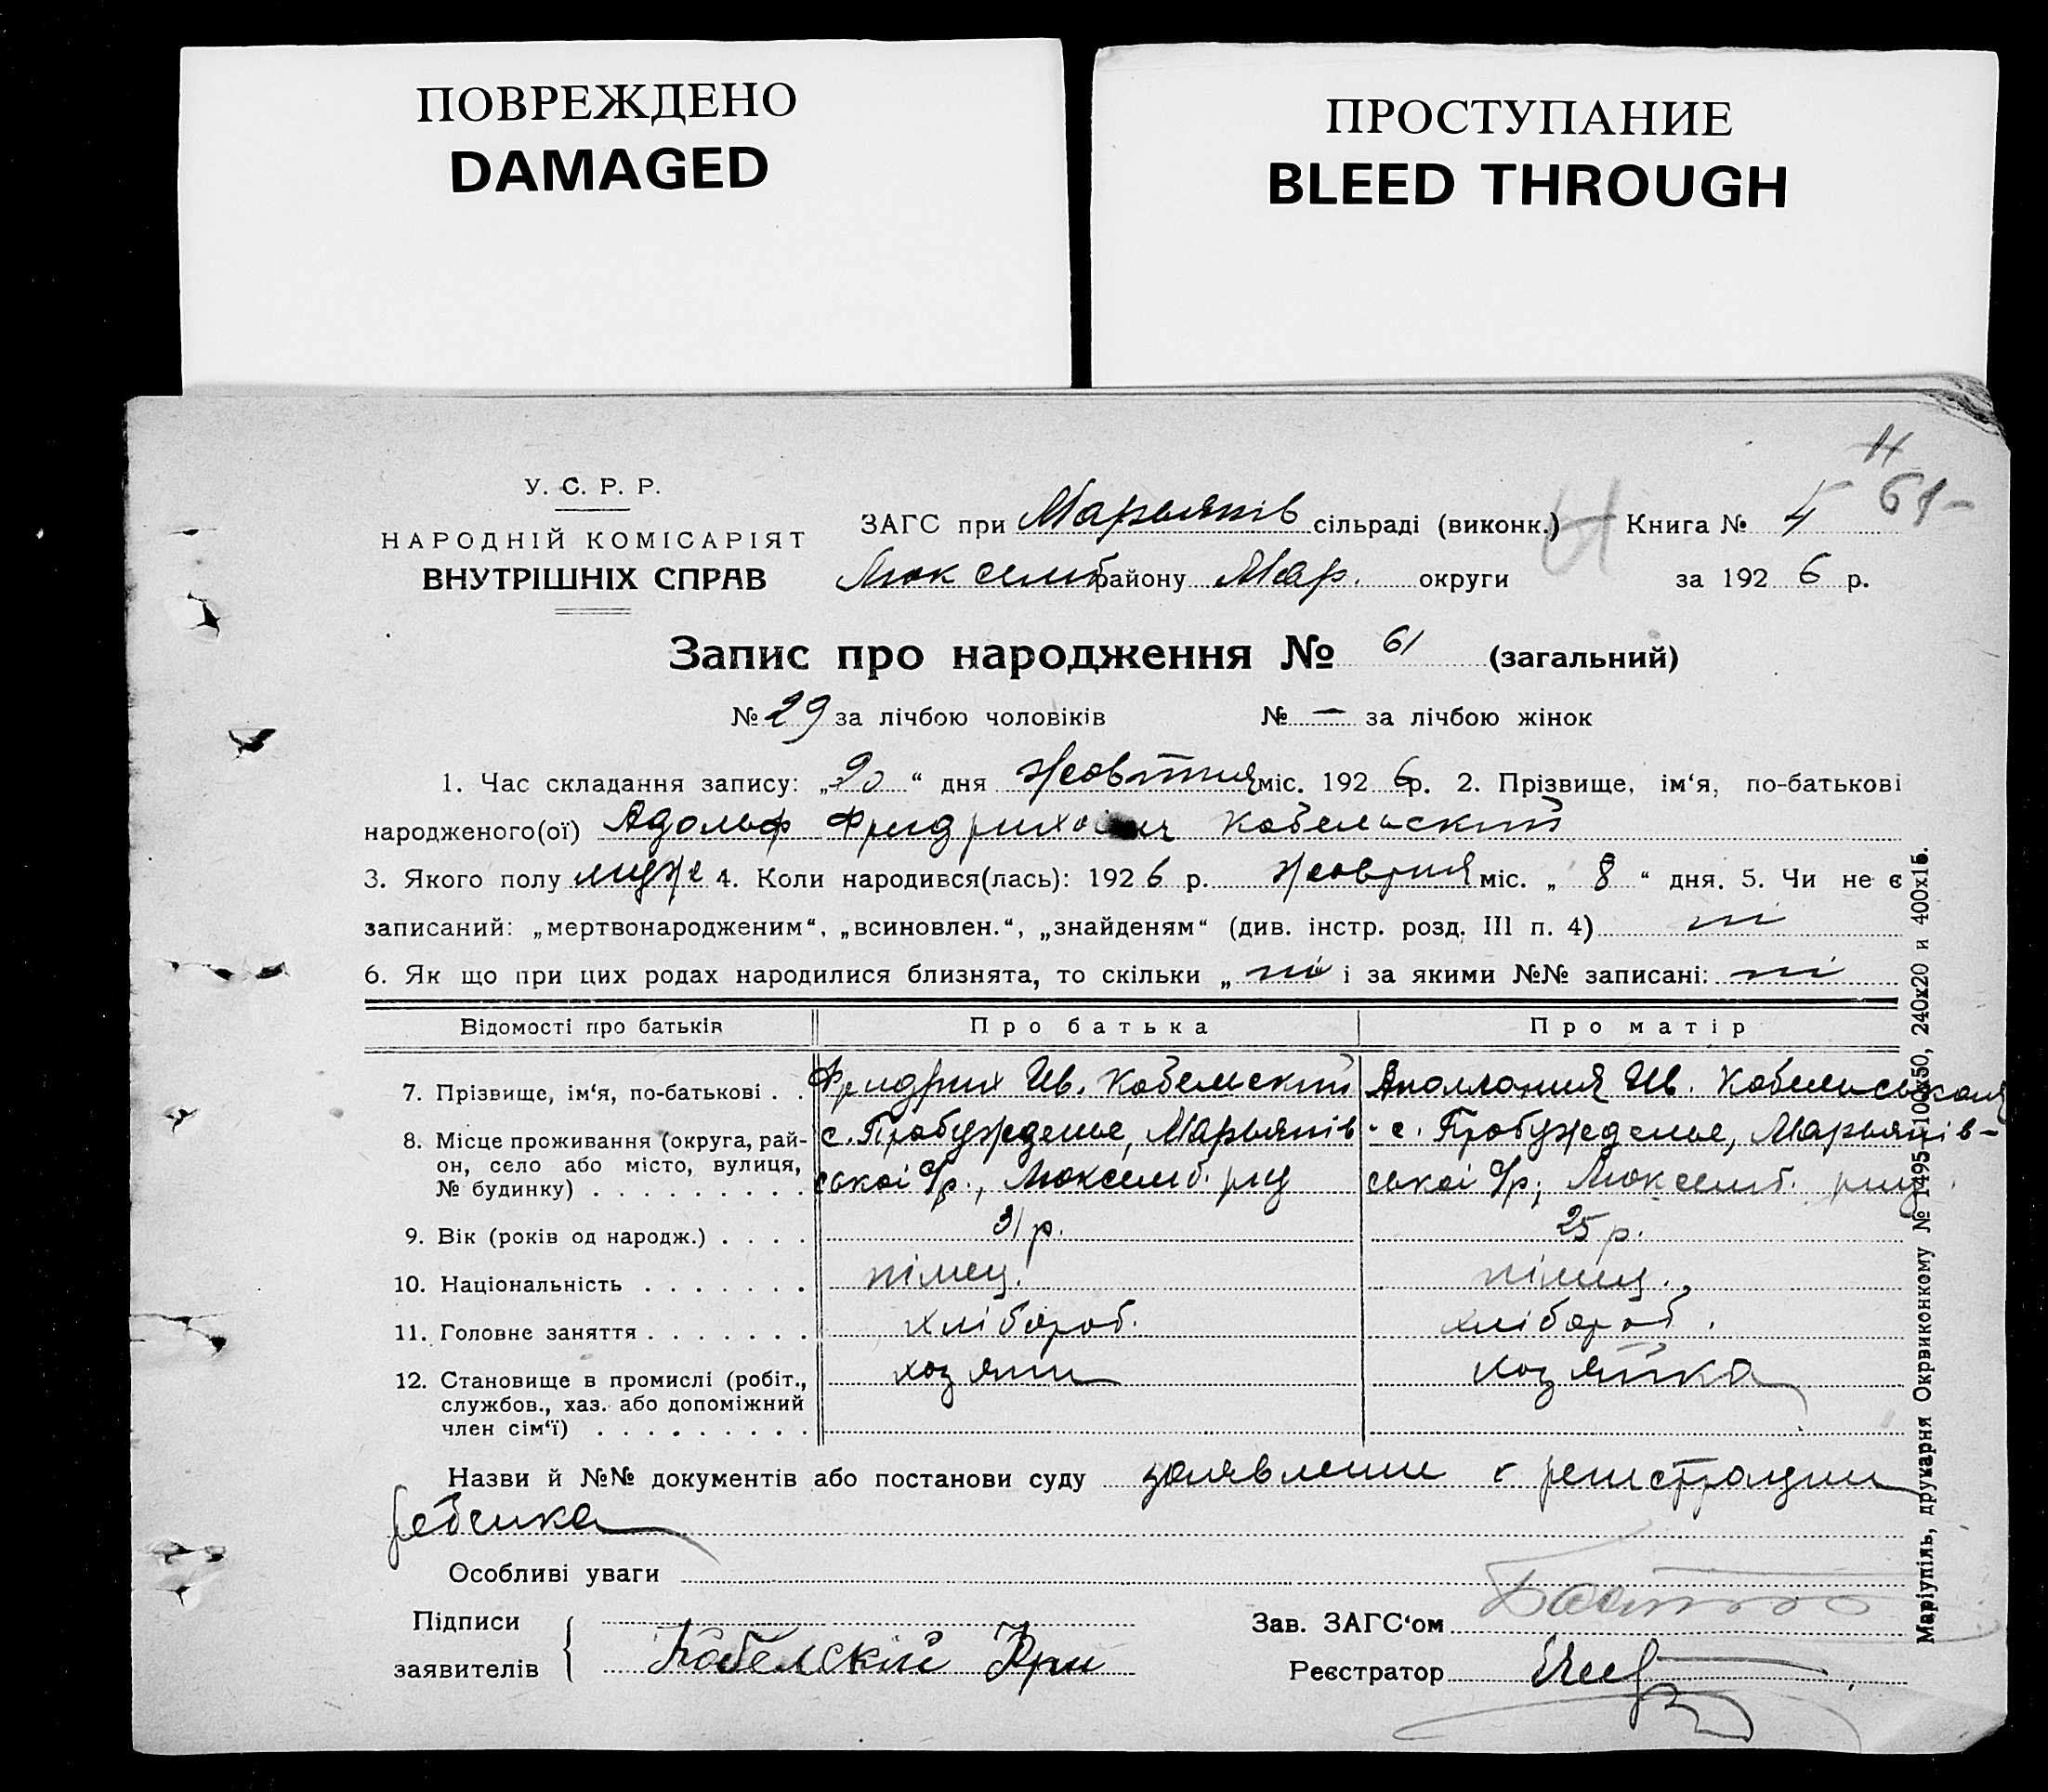 ПОВРЕЖДЕНО
DAMAGED
ПРОСТУПАНИЕ
BLEED THROUGH
У. С. Р. Р.
НАРОДНІЙ КОМІСАРІЯТ
ВНУТРІШНІХ СПРАВ
61
ЗАГС при Марьянів сільраді (виконк.) Книга № 4
Люксемб району Мар. округи за 1926 р.
Запис про народження № 61 (загальний)
№ 29 за лічбою чоловіків № — за лічбою жінок
1. Час складання запису: „20“ дня Жовтня міс. 1926 р. 2. Прізвище, ім‘я, по-батькові
народженого(ої) Адольф Фридрихович Кобельский
3. Якого полу муж 4. Коли народився(лась): 1926 р. Жовтня міс. „ 8 “ дня. 5. Чи не є
записаний: „мертвонародженим“, „всиновлен.“, „знайденям“ (див. інстр. розд. III п. 4) ні
6. Як що при цих родах народилися близнята, то скільки „ ні і за якими №№ записані: ні
Відомості про батьків Про батька Про матір
7. Прізвище, ім‘я, по-батькові . . Фридрих Ив. Кобельский Аполлония Ив. Кобельськая
8. Місце проживання (округа, рай- с. Пробужденье, Марьянів с. Пробужденье, Марьянів-
он, село або місто, вулиця, ської С/р., Люксемб. р-ну ської С/р, Люксемб. р-ну
№ будинку) . . . . . . . . .
9. Вік (років од народж.) . . . . 31 р. 25 р.
10. Національність . . . . . . . німец. німец.
11. Головне заняття . . . . . . . хлібороб. хлібороб.
12. Становище в промислі (робіт., хозяин хозяйка
службов., хаз. або допоміжний
член сім‘ї) . . . . . . . . .
Назви й №№ документів або постанови суду заявление о регистрации
ребенка
Особливі уваги
Підписи Зав. ЗАГС‘ом
заявителів Кобелскій Фри Реєстратор
Маріупіль, друкарня Окрвиконкому № 1495—100x50, 240x20 и 400x15.